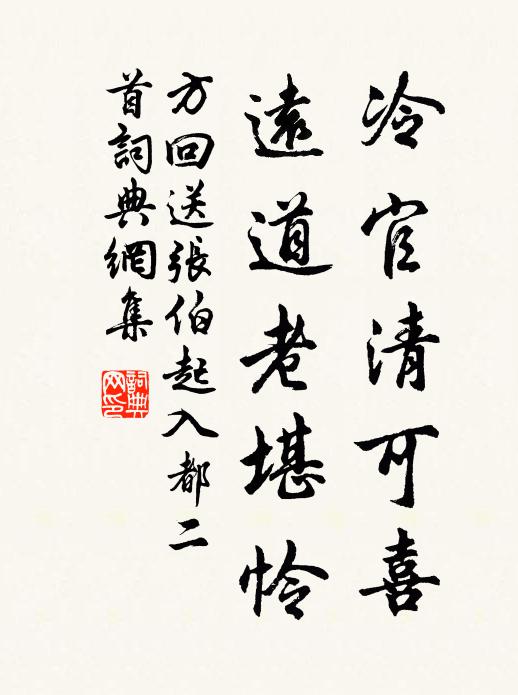 冷官清可喜
遠道老堪怜
方回送張伯起入都二
首詞典網集
詞典
网印